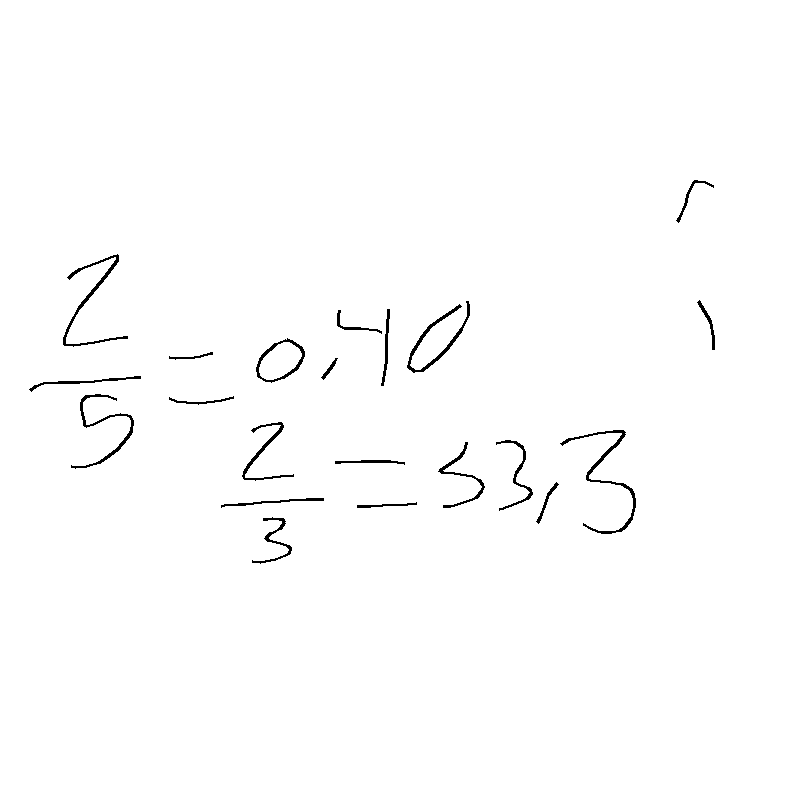 2/5 = 0,40
2/3 = 53,3